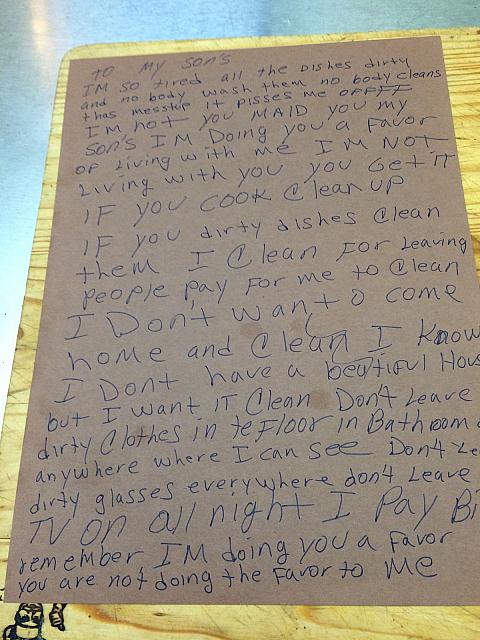 to my son's
IM so tired all the Dishes dirty
and no body wash them no body cleans
thas messtup it pisses me OFFFF
IM not you MAID you my
son's IM Doing you a Favor
OF Living with me I M NOT
Living with you you Get iT
IF you COOK Clean up
IF you dirty dishes Clean
them I Clean For Leaving
people pay For me to Clean
I Don't want o come
home and Clean I Know
I Dont have a beatiful Hous
but I want IT Clean Don't Leave
dirty Clothes in te Floor in Bathroom
anywhere where I can see Don't Le
dirty glasses everywhere don't Leave
TV on all night I Pay Bi
remember IM doing you a Favor
you are not doing the Favor to Me